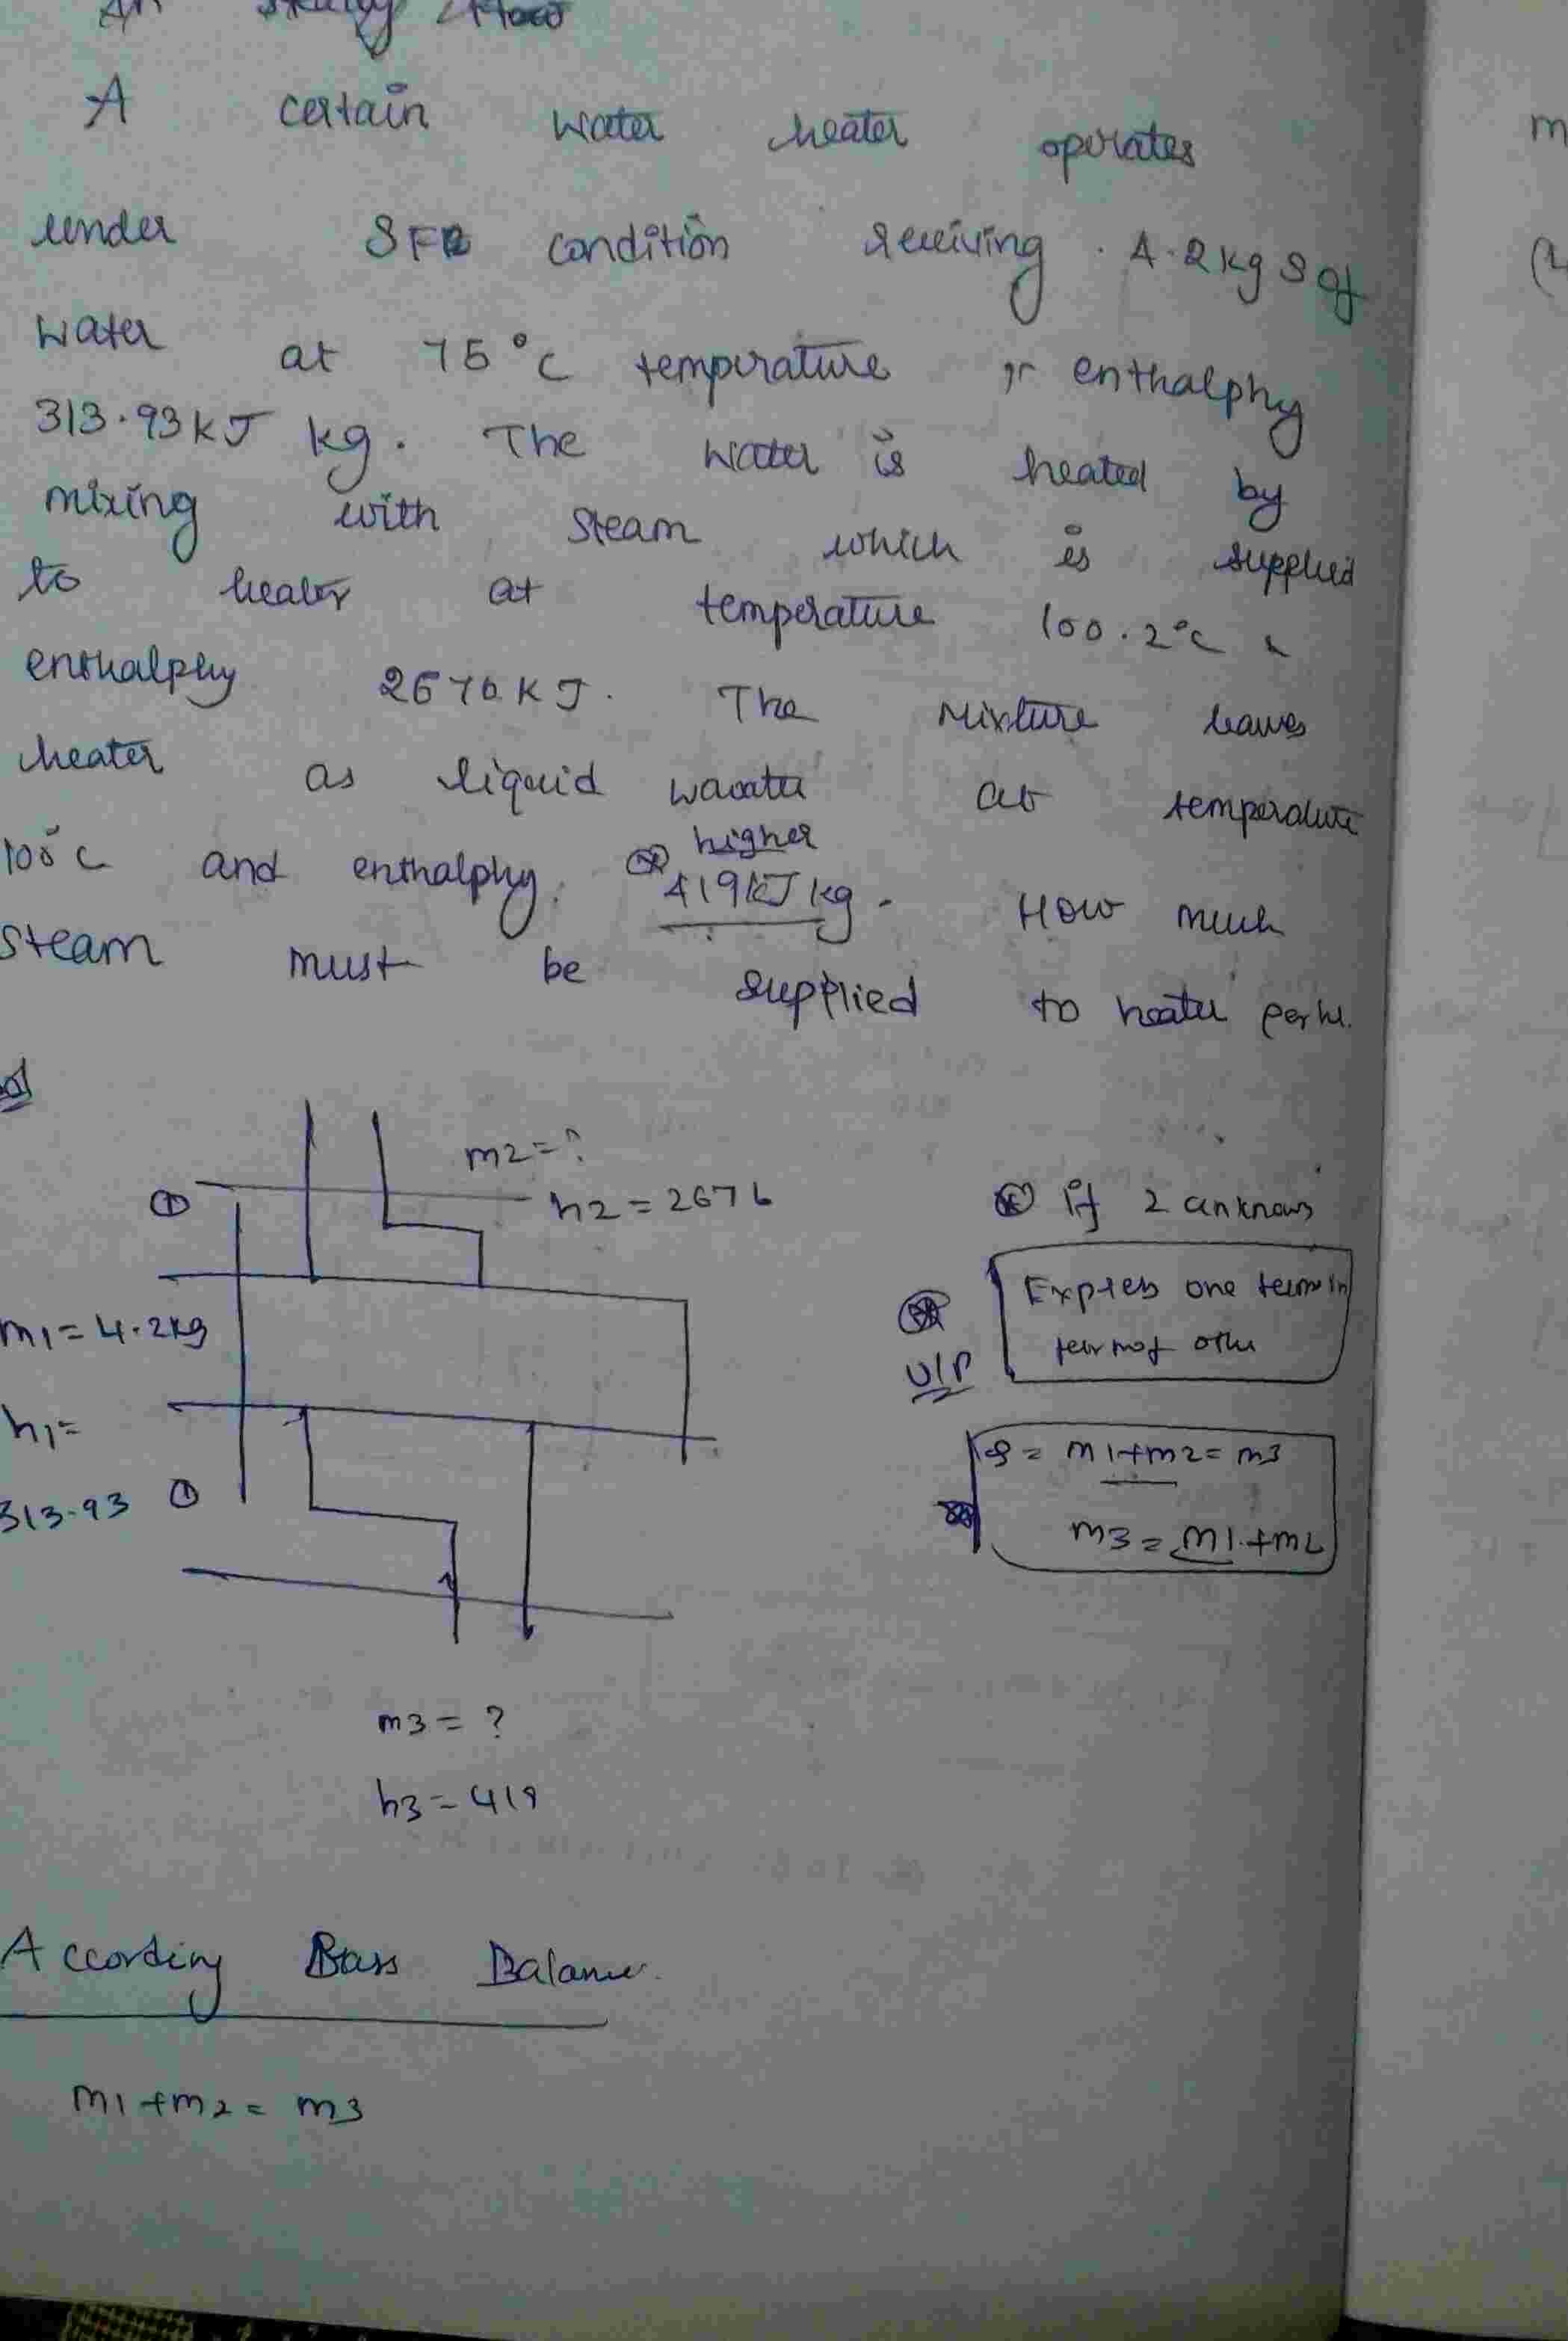 steady flow
A certain water heater operates
under SFE condition receiving . 4.2 kg s of
water at 75°C temperature enthalphy
313.93 kJ kg. The water is heated by
mixing with steam which is supplied
to heater at temperature 100.2°C &
enthalphy 2676 KJ. The mixture leaves
heater as liquid waoater at temperature
100°C and enthalphy. higher
419 kJ kg. How much
steam must be supplied to heater per hr.
m2 = ?
① h2 = 2676
if 2 unknows
m1 = 4.2kg
Express one term in
term of other
h1 =
313.93 ①
m1+m2 = m3
m3 = m1+m2
m3 = ?
h3 = 419
According Bass Balance.
m1 + m2 = m3
m